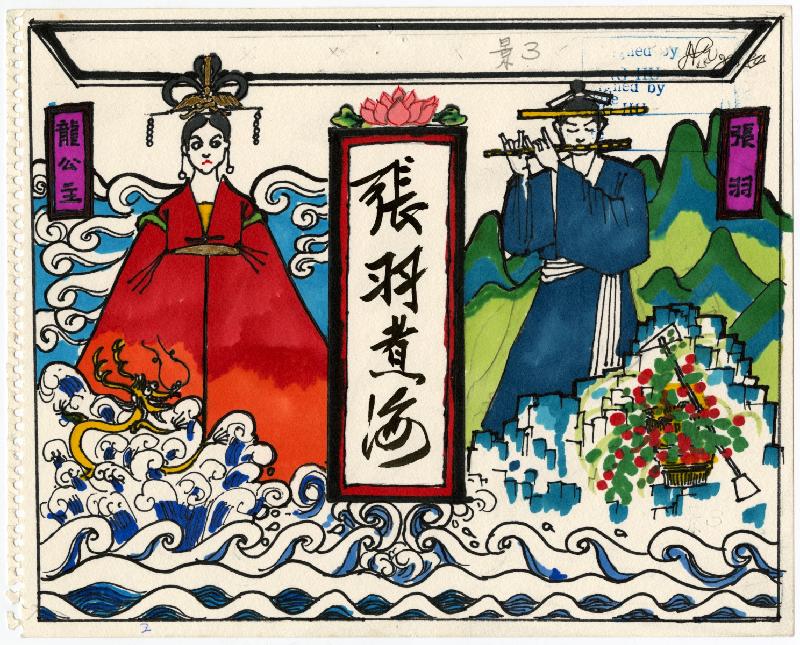 景3
gned by
igned by
龍公主
張羽煮海
張羽
2